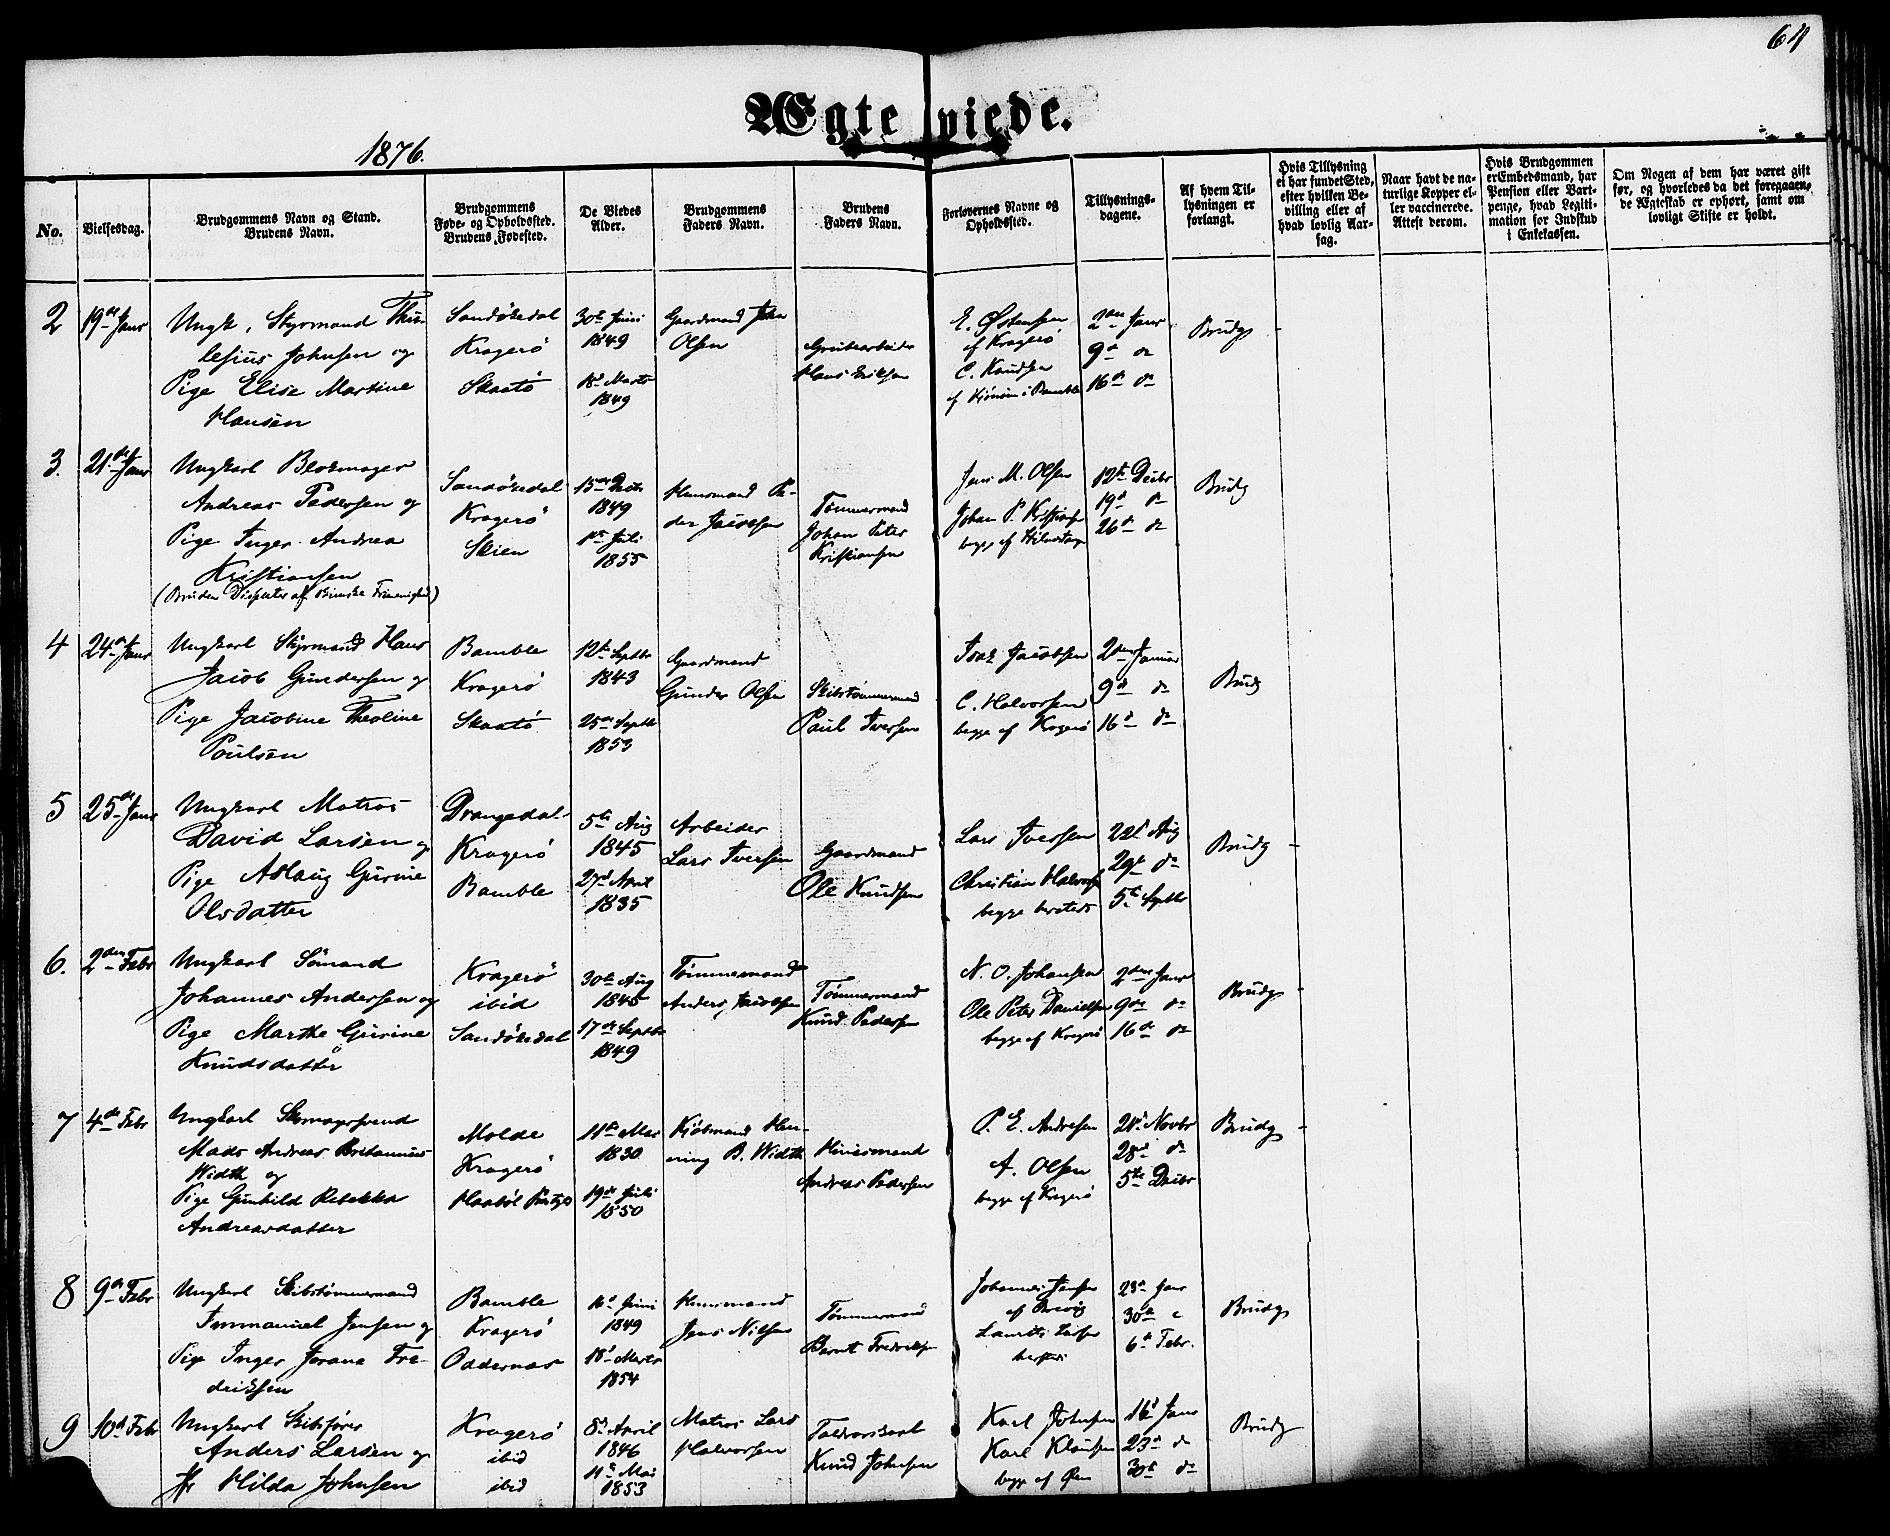 64
Ægteviede.
1876.
No.
Vielsesdag.
Brudgommens Navn og Stand.
Brudens Navn.
Brudgommens
Føde- og Opholdssted.
Brudens Fødested.
De Viedes
Alder.
Brudgommens
Faders Navn.
Brudens
Faders Navn.
Forlovernes Navne og
Opholdssted.
Tillysnings-
dagene.
Af hvem Til-
lysningen er
forlangt.
Hvis Tillysning
ei har fundet Sted,
efter hvilken Be-
villing eller af
hvad lovlig Aar-
sag.
Naar havt de na-
turlige Kopper el-
ler vaccinerede.
Attest derom.
Hvis Brudgommen
er Embedsmand, har
Pension eller Vart-
penge, hvad Legiti-
mation for Indskud
i Enkekassen.
Om Nogen af dem har været gift
før, og hvorledes da det foregaaen-
de Ægteskab er ophørt, samt om
lovligt Skifte er holdt.
2
19de Janr
Ungk. Styrmand
Johnsen og
Pige Elise Martine
Hansen
Sandøkedal
Kragerø
Skaatø
30te Juni
1849
18de Marts
1849
Gaardmand John
Olsen
Grubearbeider
Hans Eriksen
E. Østensen
af Kragerø
C. Knudsen
2den Janr
9de do
16de do
Brudg
3.
21de Janr
Ungkarl Blokmager
Andreas Pedersen og
Pige Inger Andrea
Kristiansen
Sandøkedal
Kragerø
Skien
15de Decbr
1849
1ste Juli
1855
Huusmand Pe-
der Jacobsen
Tømmermand
Johan Peter
Kristiansen
Jens M. Olsen
Johan P. Kristians
12te Decbr
19de do
26de do
Brudg
4
24de Janr
Ungkarl Styrmand Hans
Jacob Gundersen og
Pige Jacobine Theoline
Poulsen
Bamble
Kragerø
Skaatø
12te Septbr
1843
25de Septbr
1853
Gaardmand
Gunder Olsen
Skibstømmermand
Paul Iversen
Isak Jacobsen
C. Halvorsen
begge af Kragerø
2den Januar
9de do
16de do
Brudg
5
25de Janr
Ungkarl Matros
David Larsen og
Pige Aslaug Gurine
Olsdatter
Drangedal
Kragerø
Bamble
5te Aug
1845
27de April
1835
Arbeider
Lars Iversen
Gaardmand
Ole Knudsen
Lars Iversen
Christian Halvorsen
begge hersteds
22de Aug
29de do
5te Septbr
Brudg
6.
2den Febr
Ungkarl Sømand
Johannes Andersen og
Pige Marthe Gurine
Knudsdatter
Kragerø
ibid
Sandøkedal
30te Aug
1845
17de Septbr
1849
Tømmermand
Anders Jacobsen
Tømmermand
Knud Pedersen
N. O. Johansen
Ole Peter Danielsen
begge af Kragerø
2den Janr
9de do
16de do
Brudg
7
4de Febr
Ungkarl Skomagersvend
Mads Andreas Bretannus
Width og
Pige Gunhild Rebekka
Andreasdatter
Molde
Kragerø
11te Mai
1830
19de Juli
1850
Kjøbmand Hen-
ning B. Width
Huusmand
Andreas Pedersen
P. E. Andresen
A. Olsen
begge af Kragerø
21de Novbr
28de do
5te Decbr
Brudg
8
9de Febr
Ungkarl Skibstømmermand
Immanuel Jensen og
Pige Inger Jorane Fre-
driksen
Bamble
Kragerø
Oddernæs
Juni
1849
18de Marts
1854
Huusmand
Jens Nilsen
Tømmermand
Bernt Fredriksen
Johannes Jensen
af Brevig
Laurits Larsen
hersteds
23de Janr
30te
6te Febr.
Brudg
9
10de Febr
Ungkarl Skibsfører
Anders Larsen og
Jfr Hilda Johnsen
Kragerø
ibid
ibid
8de April
1846
11te Mai
1853
Matros Lars
Halvorsen
Knud Johnsen
Karl Johnsen
Karl Klausen
begge af Øen
16de Janr
23de do
30te do
Brudg